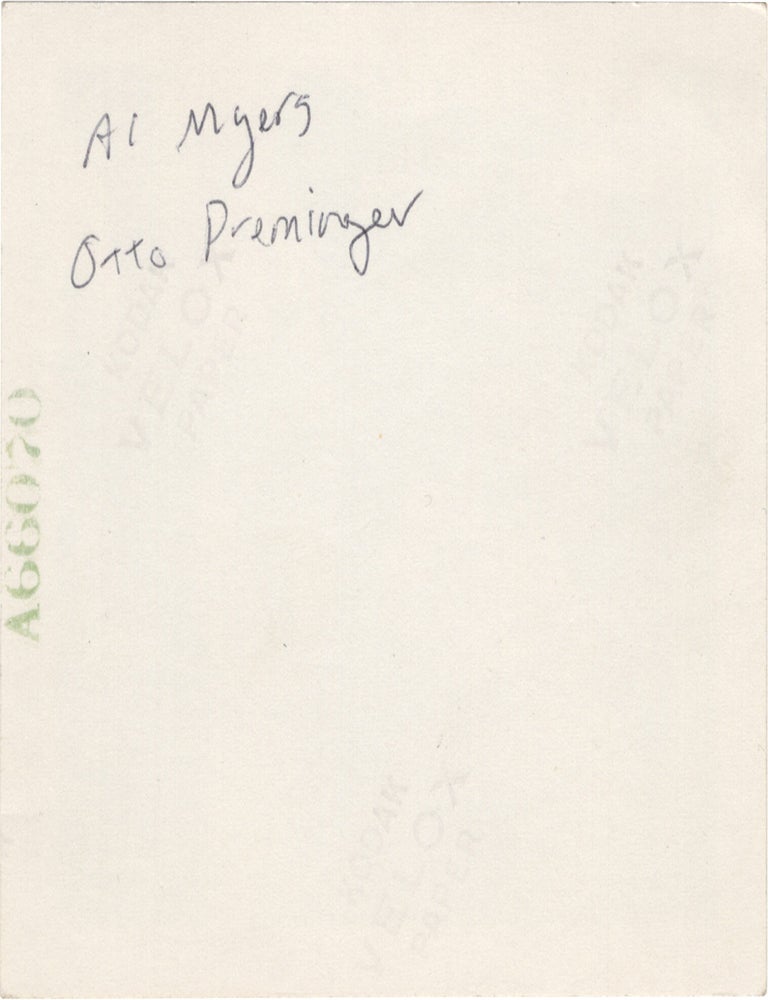 Al Myers
Otto Preminger
KODAK
VELOX
PAPER
KODAK
VELOX
PAPER
A66070
KODAK
VELOX
PAPER